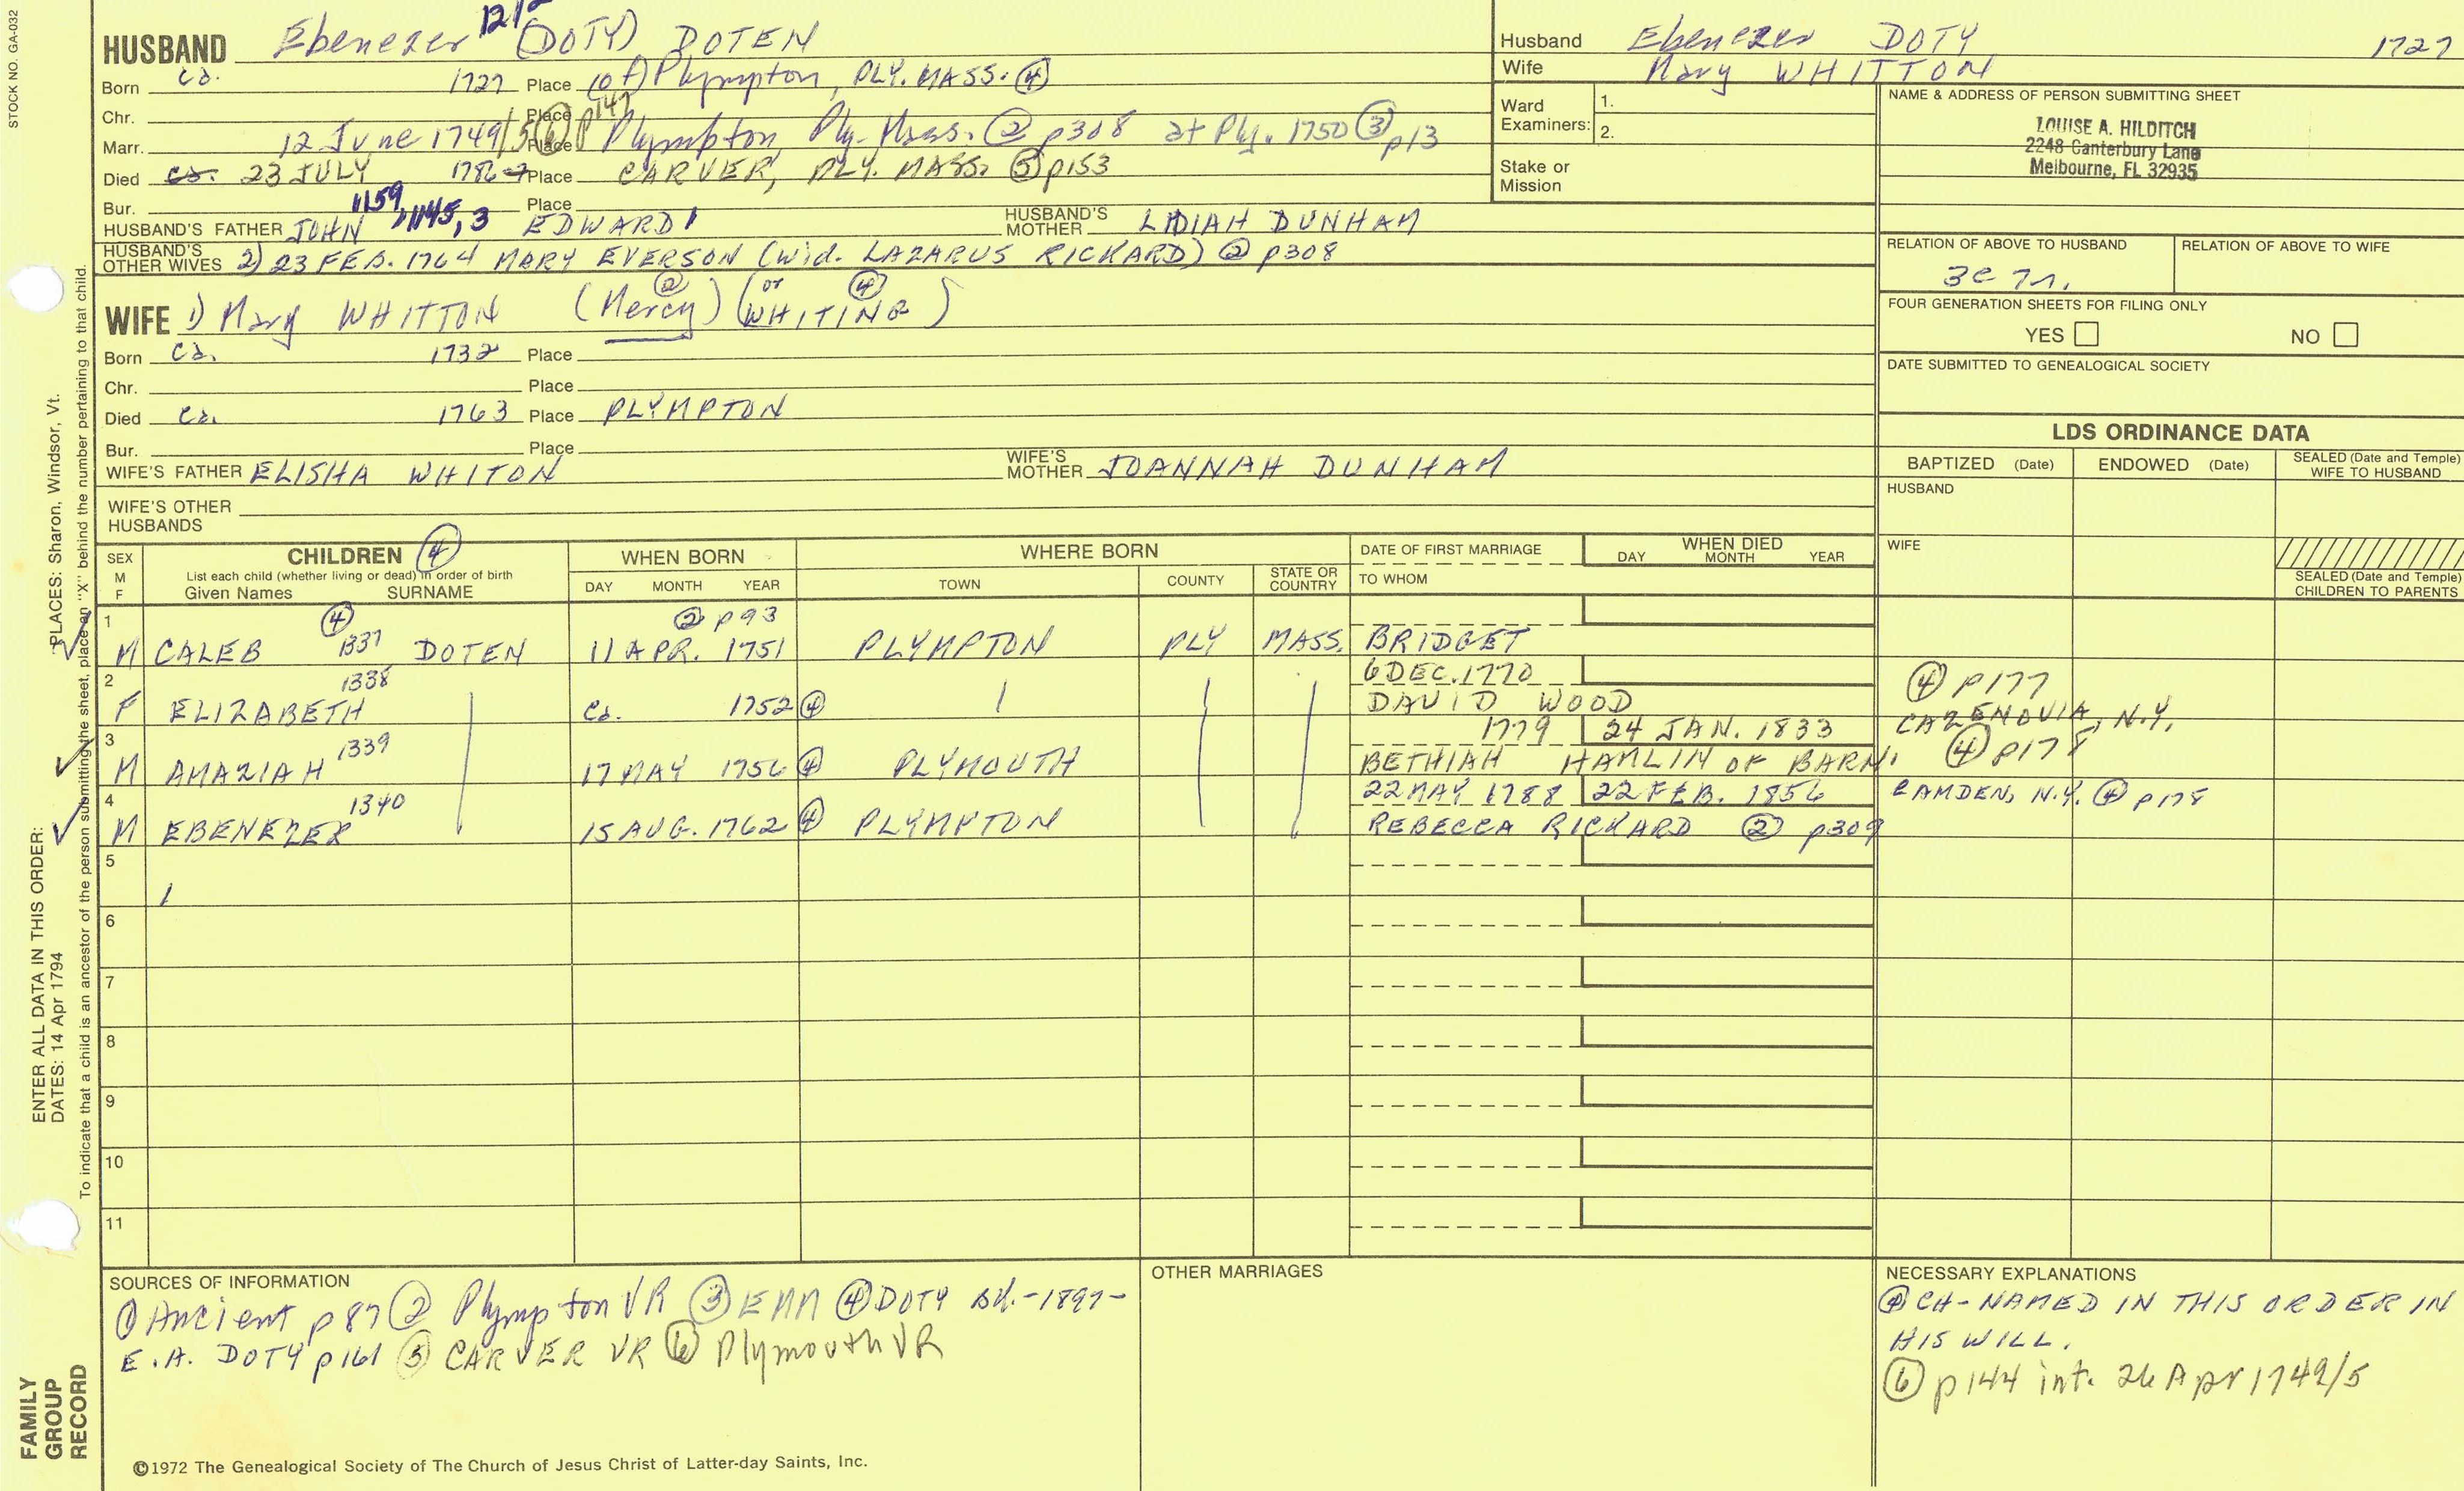 STOCK NO. GA-032
HUSBAND Ebenezer (DOTY) DOTEN
Born ca. 1727 Place (of) Plympton, PLY. MASS. ④
Chr. Place p147
Marr. 12 June 1749/50 ⑥ Place Plympton, Ply. Mass. ② p308 at Ply. 1750 ③ p13
Died ca. 23 JULY Place CARVER, PLY. MASS. ⑤ p153
Bur. Place
HUSBAND'S FATHER JOHN 1159, 1145, 3 EDWARD 1 HUSBAND'S MOTHER LIDIAH DUNHAM
HUSBAND'S OTHER WIVES 2) 23 FEB. 1764 MARY EVERSON (wid. LAZARUS RICKARD) ② p308
WIFE 1) Mary WHITTON (Mercy) ② (or WHITING) ④
Born ca. 1732 Place
Chr. Place
Died ca. 1763 Place PLYMPTON
Bur. Place
WIFE'S FATHER ELISHA WHITON WIFE'S MOTHER JOANNAH DUNHAM
WIFE'S OTHER HUSBANDS
Husband Ebenezer DOTY 1727
Wife Mary WHITTON
Ward Examiners: 1.
2.
Stake or Mission
NAME & ADDRESS OF PERSON SUBMITTING SHEET
LOUISE A. HILDITCH
2248 Canterbury Lane
Melbourne, FL 32935
RELATION OF ABOVE TO HUSBAND RELATION OF ABOVE TO WIFE
FOUR GENERATION SHEETS FOR FILING ONLY
YES NO
DATE SUBMITTED TO GENEALOGICAL SOCIETY
LDS ORDINANCE DATA
BAPTIZED (Date) ENDOWED (Date) SEALED (Date and Temple) WIFE TO HUSBAND
HUSBAND
WIFE
SEALED (Date and Temple) CHILDREN TO PARENTS
SEX M F CHILDREN ④ WHEN BORN WHERE BORN DATE OF FIRST MARRIAGE WHEN DIED
List each child (whether living or dead) in order of birth
Given Names SURNAME DAY MONTH YEAR TOWN COUNTY STATE OR COUNTRY TO WHOM DAY MONTH YEAR
1 ④ ② p93
M CALEB 1337 DOTEN 11 APR. 1751 PLYMPTON PLY MASS. BRIDGET
2 1338 6 DEC. 1770 ④ p177
F ELIZABETH ca. 1752 ④ DAVID WOOD
3 1339 1779 24 JAN. 1833 CAZENOVIA, N.Y.
M AMAZIAH 17 MAY 1756 ④ PLYMOUTH BETHIAH HAMLIN OF BARN. ④ p178
4 1340 22 MAY 1788 22 FEB. 1856 CAMDEN, N.Y. ④ p178
M EBENEZER 15 AUG. 1762 ④ PLYMPTON REBECCA RICKARD ② p309
5
6
7
8
9
10
11
SOURCES OF INFORMATION
① Ancient p87 ② Plympton VR ③ EMM ④ DOTY Bk. -1897-
E.A. DOTY p161 ⑤ CARVER VR ⑥ Plymouth VR
OTHER MARRIAGES
NECESSARY EXPLANATIONS
④ CH- NAMED IN THIS ORDER IN
HIS WILL.
⑥ p144 int. 26 Apr 1749/5
©1972 The Genealogical Society of The Church of Jesus Christ of Latter-day Saints, Inc.
FAMILY GROUP RECORD
ENTER ALL DATA IN THIS ORDER:
DATES: 14 Apr 1794
PLACES: Sharon, Windsor, Vt.
To indicate that a child is an ancestor of the person submitting the sheet, place an "X" behind the number pertaining to that child.